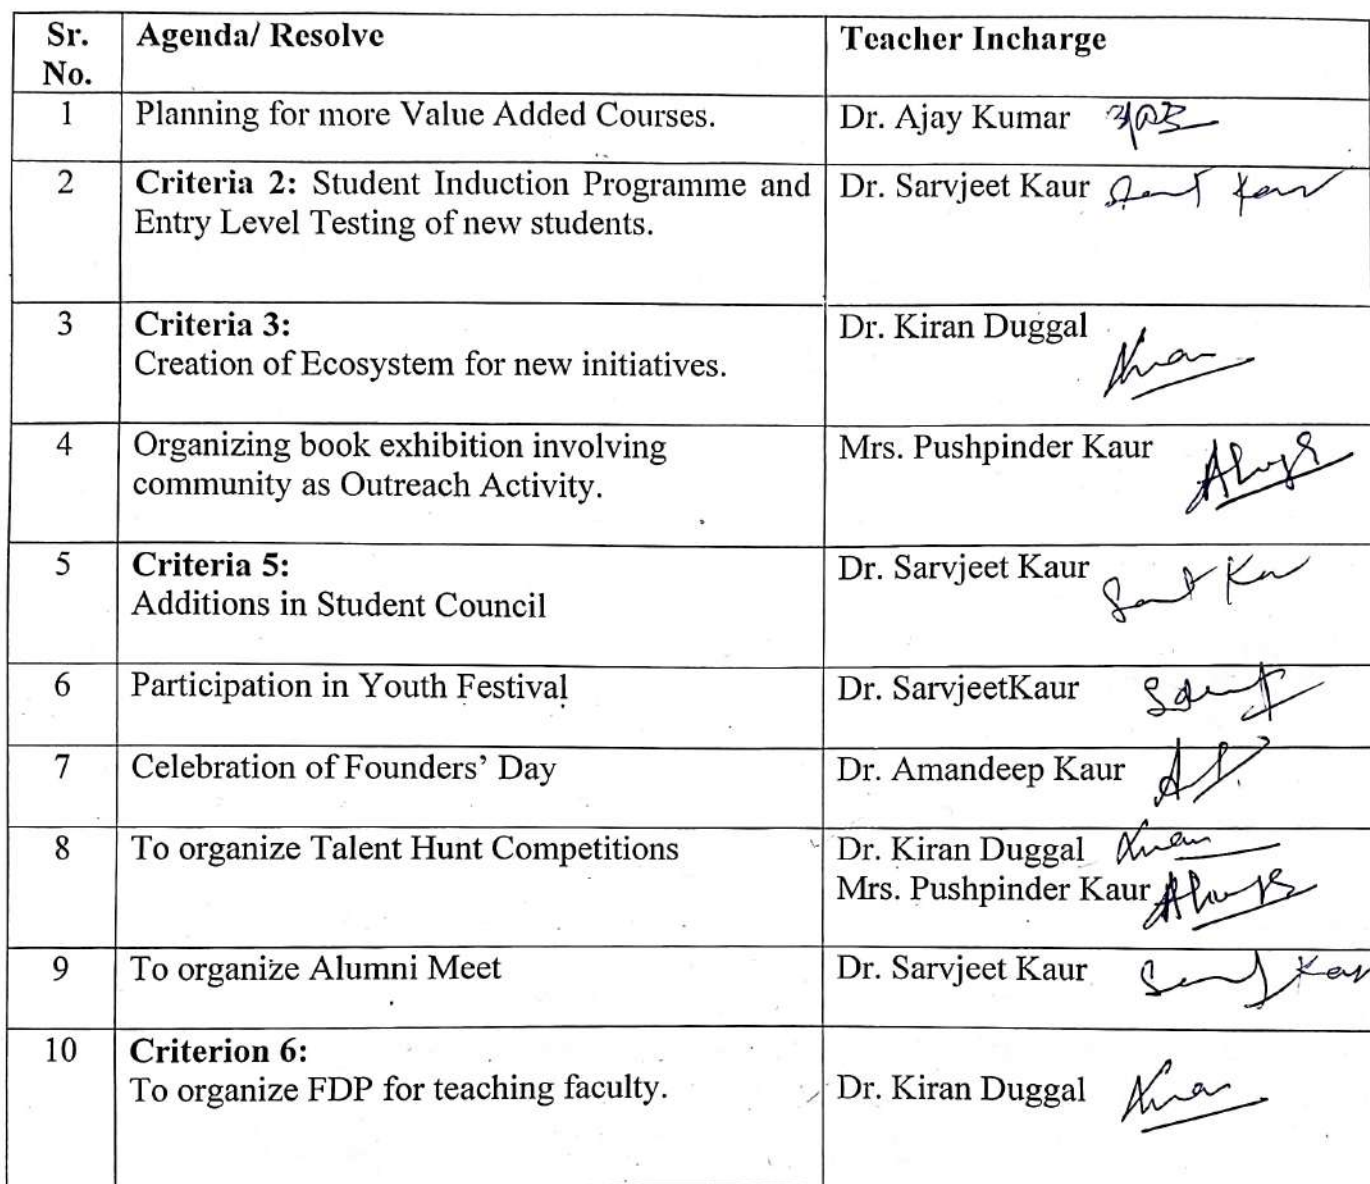 Sr. No. Agenda/ Resolve Teacher Incharge
1 Planning for more Value Added Courses. Dr. Ajay Kumar
2 Criteria 2: Student Induction Programme and Dr. Sarvjeet Kaur
Entry Level Testing of new students.
3 Criteria 3: Dr. Kiran Duggal
Creation of Ecosystem for new initiatives.
4 Organizing book exhibition involving Mrs. Pushpinder Kaur
community as Outreach Activity.
5 Criteria 5: Dr. Sarvjeet Kaur
Additions in Student Council
6 Participation in Youth Festival Dr. SarvjeetKaur
7 Celebration of Founders' Day Dr. Amandeep Kaur
8 To organize Talent Hunt Competitions Dr. Kiran Duggal
Mrs. Pushpinder Kaur
9 To organize Alumni Meet Dr. Sarvjeet Kaur
10 Criterion 6:
To organize FDP for teaching faculty. Dr. Kiran Duggal